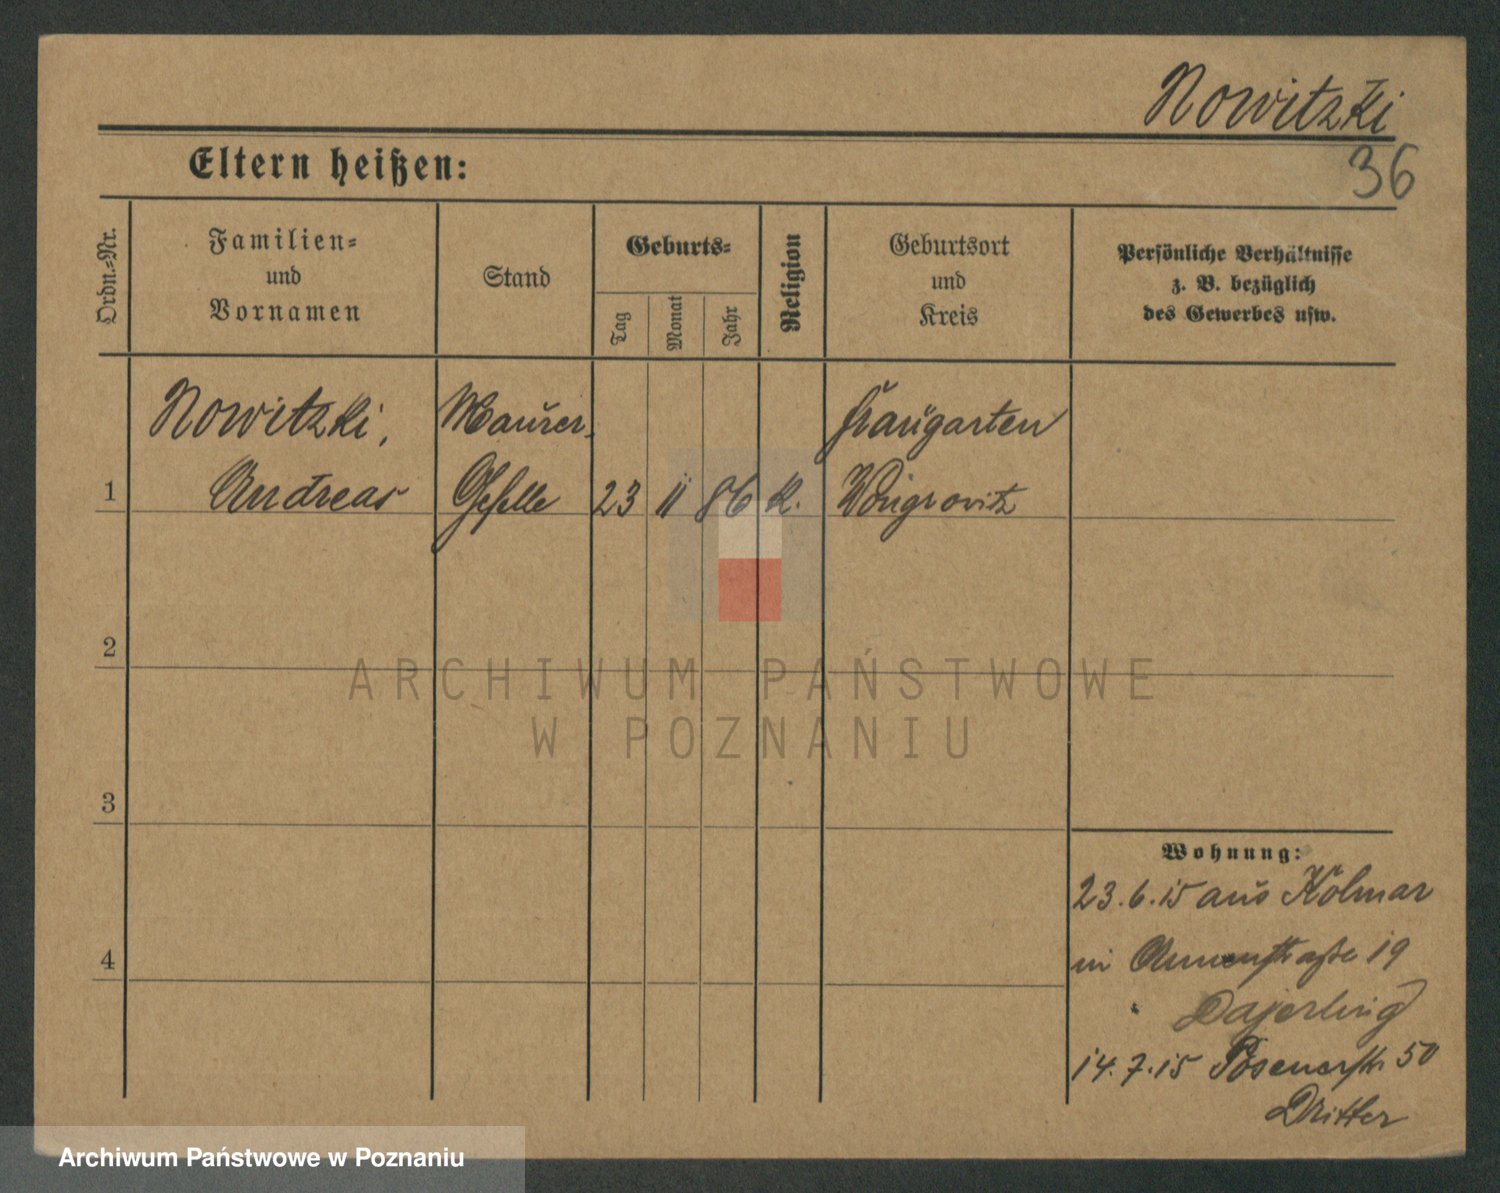 Nowitzki
36
Eltern heißen:
Ordn.-Nr.
Familien-
und
Vornamen
Stand
Geburts-
Tag
Monat
Jahr
Religion
Geburtsort
und
Kreis
Persönliche Verhältnisse
z. B. bezüglich
des Gewerbes usw.
Nowitzki,
Maurer-
1
Andreas
Geselle
23
11
86
k.
Wongrovitz
2
3
4
ARCHIWUM PAŃSTWOWE
W POZNANIU
Wohnung:
23.6.15 aus Kolmar
in Annenstraße 19
14.7.15 Posenerstr. 50
Archiwum Państwowe w Poznaniu